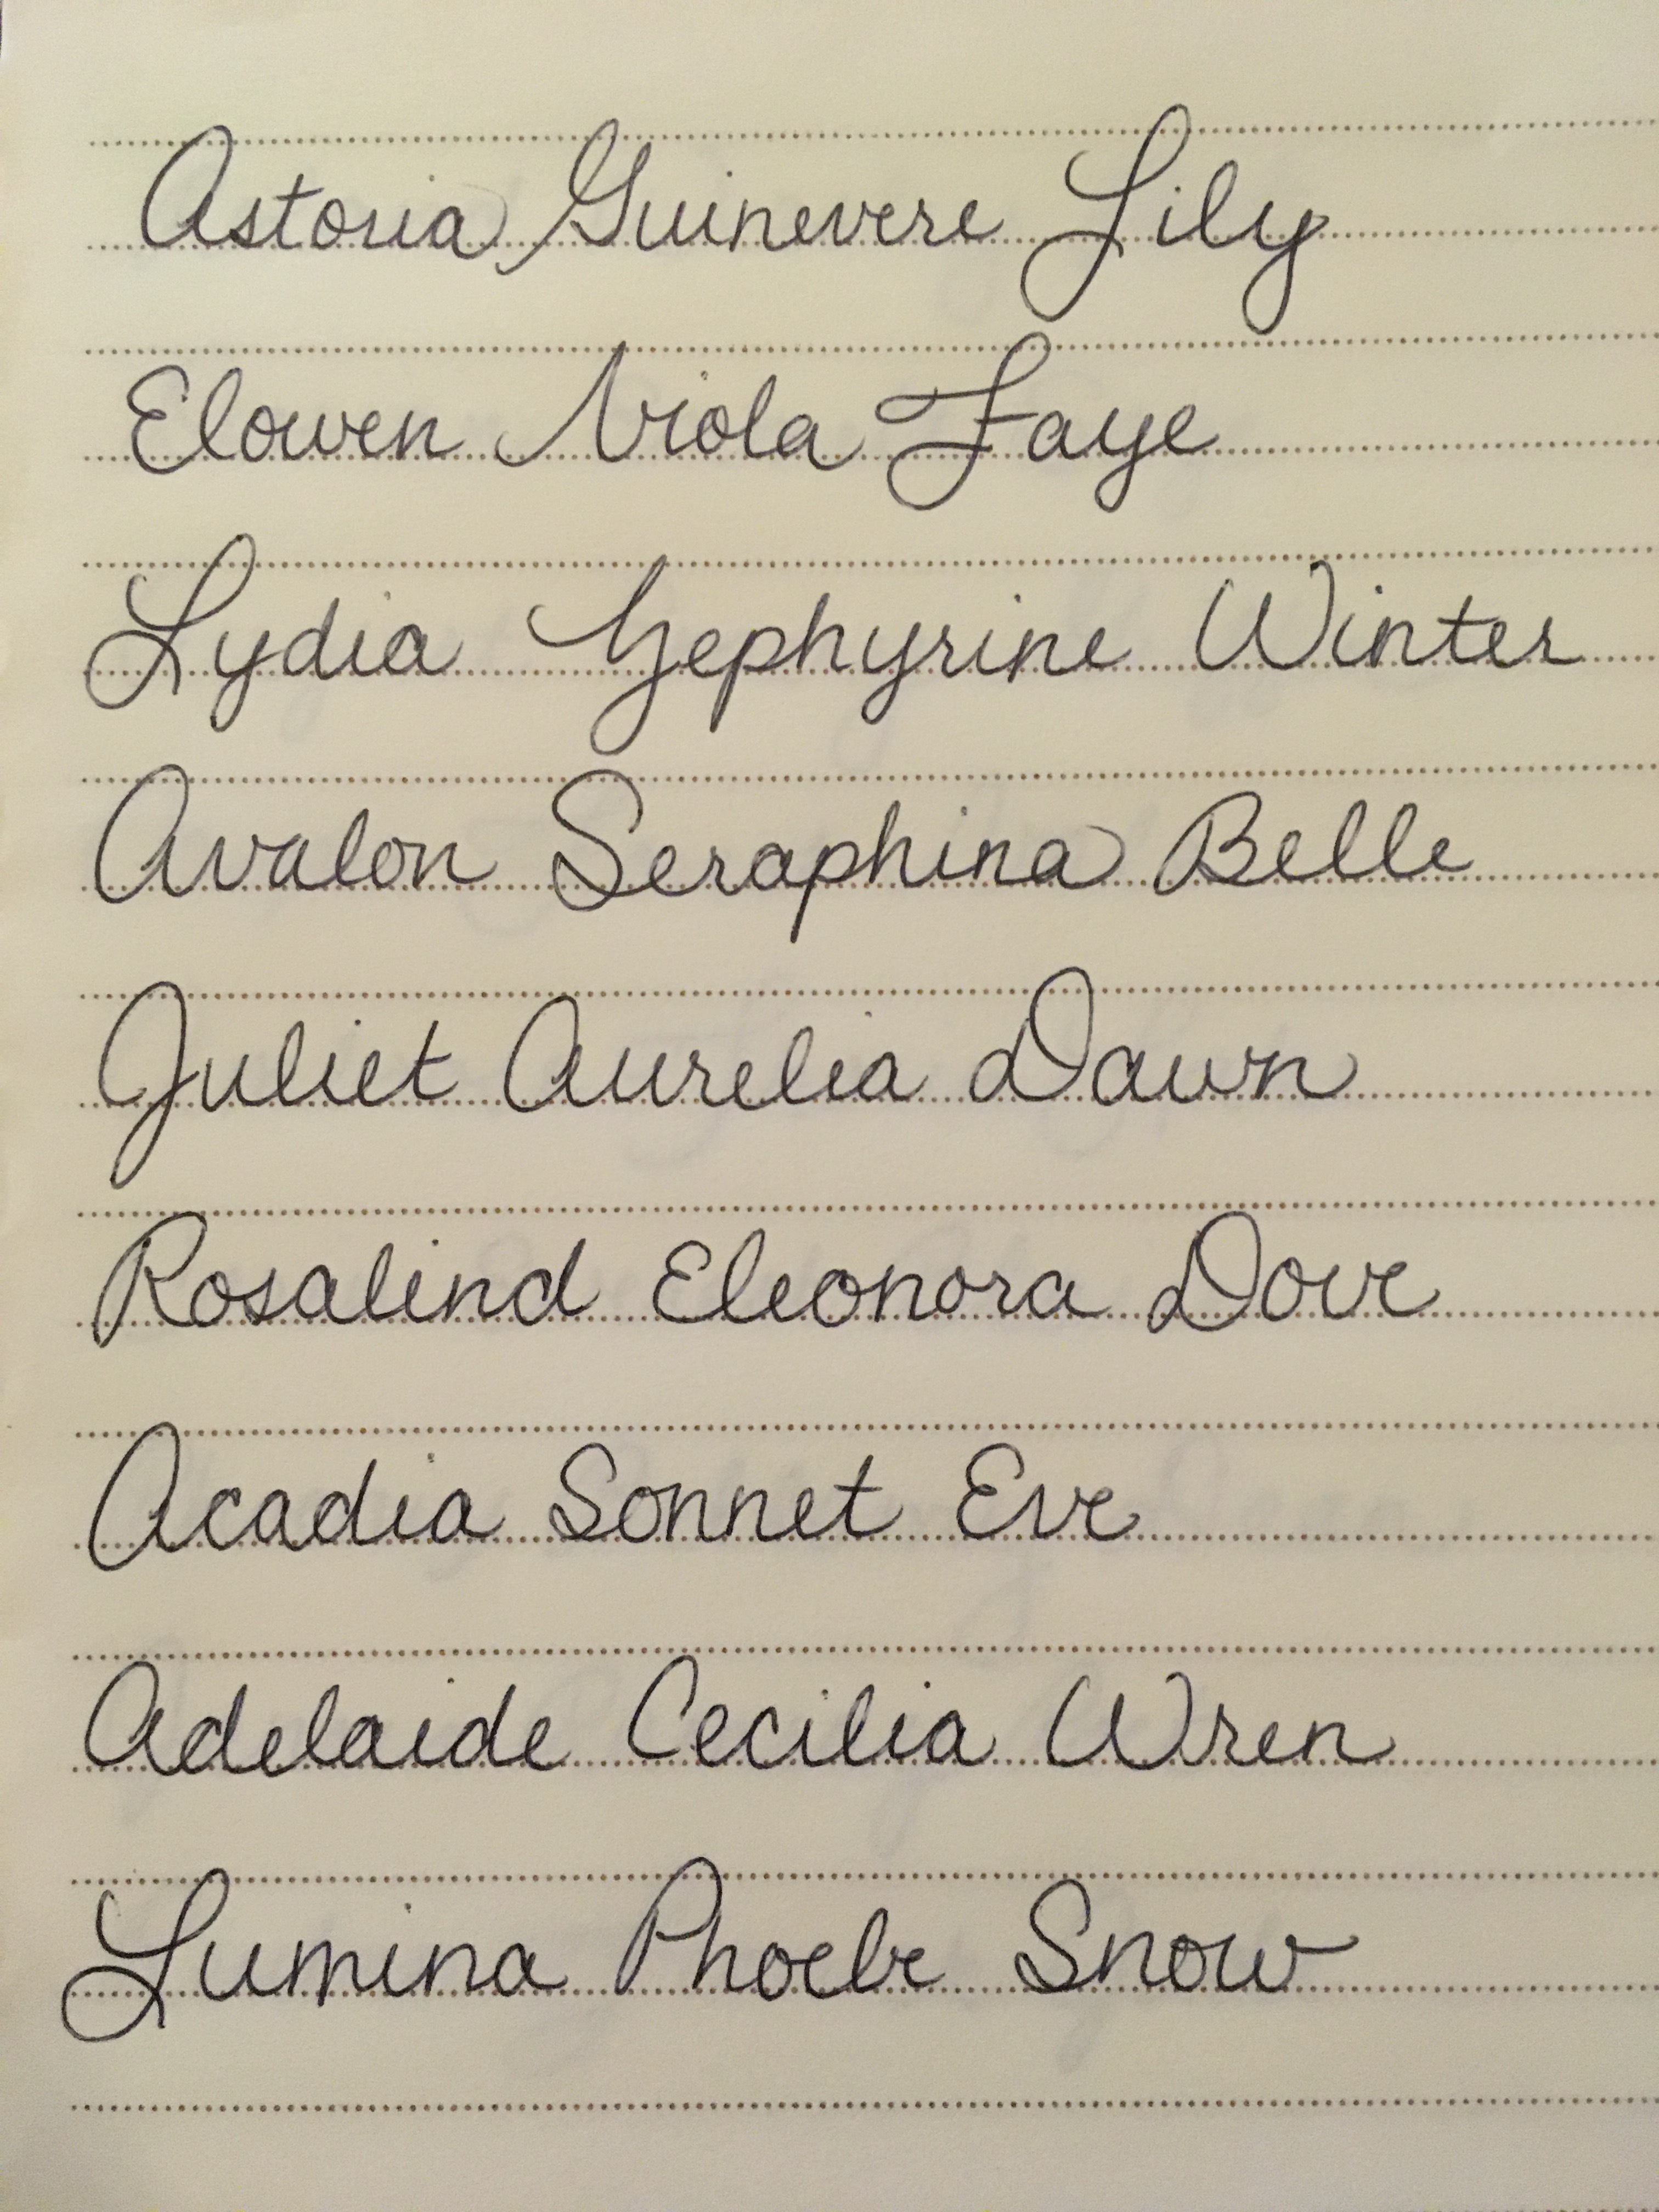 Astoria Guinevere Lily
Elowen Viola Faye
Lydia Zephyrine Winter
Avalon Seraphina Belle
Juliet Aurelia Dawn
Rosalind Eleonora Dove
Acadia Sonnet Eve
Adelaide Cecilia Wren
Lumina Phoebe Snow